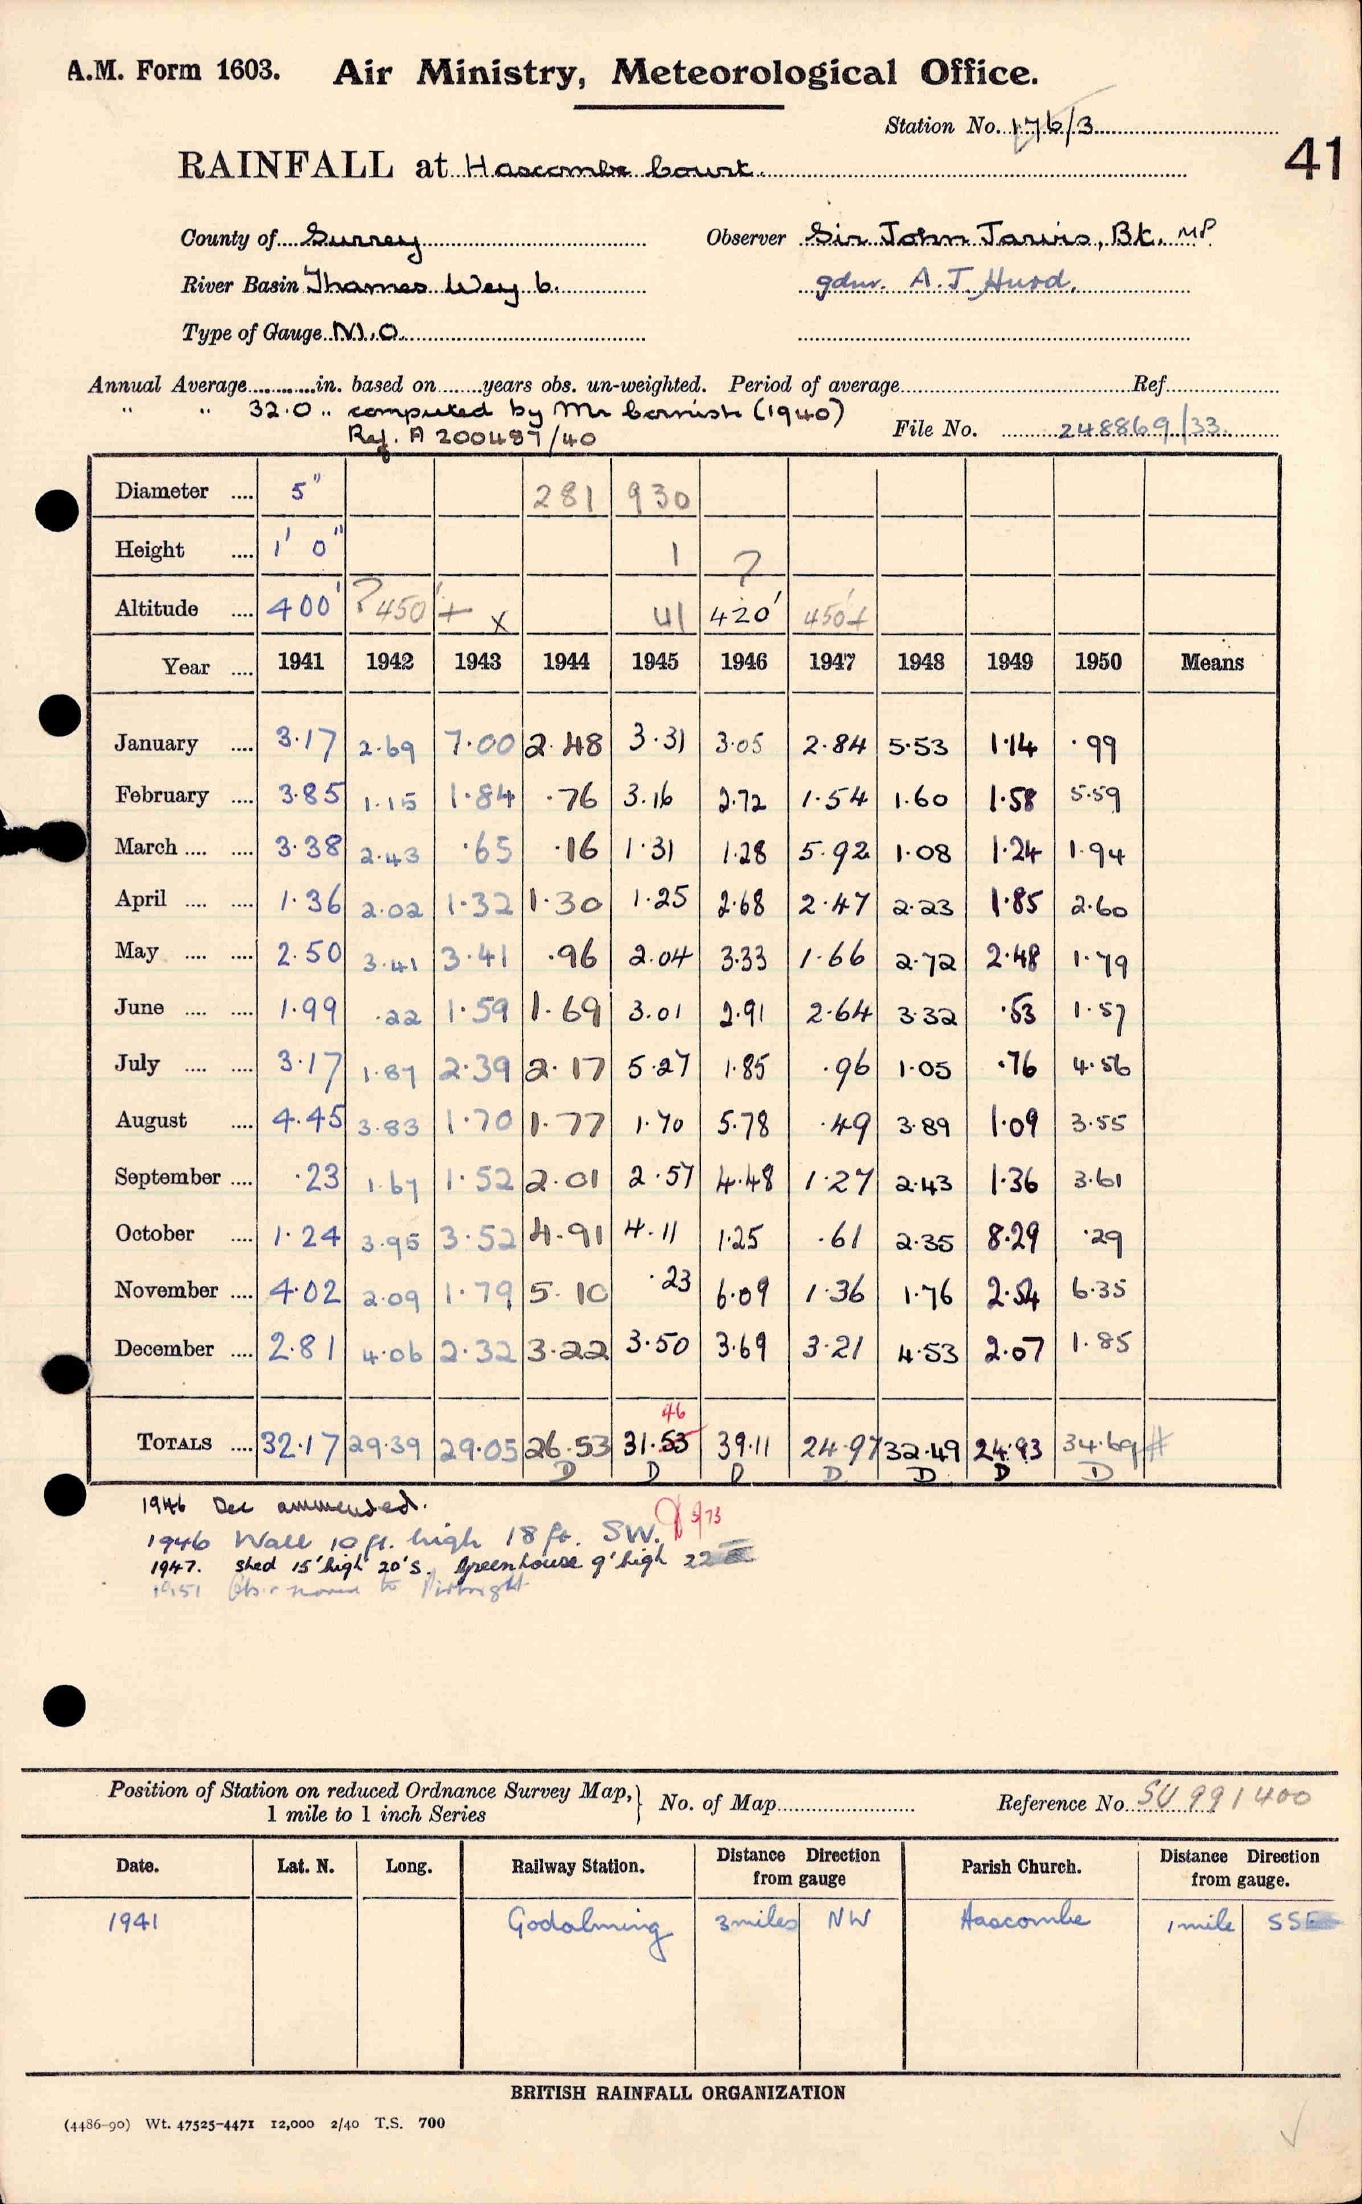 A.M. Form 1603. Air Ministry, Meteorological Office.
Station No. 176/3
41
RAINFALL at Hascombe Court.
County of Surrey Observer Sir John Jarvis, Bt. MP.
River Basin Thames Wey b. gdnr. A. J. Hurd.
Type of Gauge M.O.
Annual Average in. based on years obs. un-weighted. Period of average Ref
" " 32.0 " computed by Mr Cornish (1940)
Ref. A 200487/40 File No. 248869/33
Diameter 5" 281 930
Height 1' 0" 1 ?
Altitude 400' ?450'+ x 41 420' 450'+
Year 1941 1942 1943 1944 1945 1946 1947 1948 1949 1950 Means
January 3.17 2.69 7.00 2.48 3.31 3.05 2.84 5.53 1.14 .99
February 3.85 1.15 1.84 .76 3.16 2.72 1.54 1.60 1.58 5.59
March 3.38 2.43 .65 .16 1.31 1.28 5.92 1.08 1.24 1.94
April 1.36 2.02 1.32 1.30 1.25 2.68 2.47 2.23 1.85 2.60
May 2.50 3.41 3.41 .96 2.04 3.33 1.66 2.72 2.48 1.79
June 1.99 .22 1.59 1.69 3.01 2.91 2.64 3.32 .53 1.57
July 3.17 1.87 2.39 2.17 5.27 1.85 .96 1.05 .76 4.56
August 4.45 3.83 1.70 1.77 1.70 5.78 .49 3.89 1.09 3.55
September .23 1.67 1.52 2.01 2.57 4.48 1.27 2.43 1.36 3.61
October 1.24 3.95 3.52 4.91 4.11 1.25 .61 2.35 8.29 .29
November 4.02 2.09 1.79 5.10 .23 6.09 1.36 1.76 2.54 6.35
December 2.81 4.06 2.32 3.22 3.50 3.69 3.21 4.53 2.07 1.85
46
TOTALS 32.17 29.39 29.05 26.53 31.53 39.11 24.97 32.49 24.93 34.69 #
D D D D D D D
1946 Dec ammended.
1946 Wall 10 ft. high 18 ft. SW. 5/73
1947. shed 15' high 20' S. Greenhouse 9' high 22
1951 Obsr moved to Pirbright
Position of Station on reduced Ordnance Survey Map,
1 mile to 1 inch Series
No. of Map Reference No. SU 991400
Date. Lat. N. Long. Railway Station. Distance Direction from gauge Parish Church. Distance Direction from gauge.
1941 Godalming 3 miles NW Hascombe 1 mile SSE
BRITISH RAINFALL ORGANIZATION
(4486-90) Wt. 47525-4471 12,000 2/40 T.S. 700